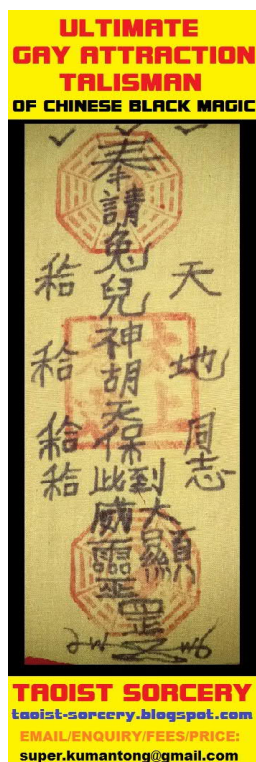 ULTIMATE
GAY ATTRACTION
TALISMAN
OF CHINESE BLACK MAGIC
天地同志
奉請兔兒神胡天保到此
大顯威靈
罡
TAOIST SORCERY
taoist-sorcery.blogspot.com
EMAIL/ENQUIRY/FEES/PRICE:
super.kumantong@gmail.com